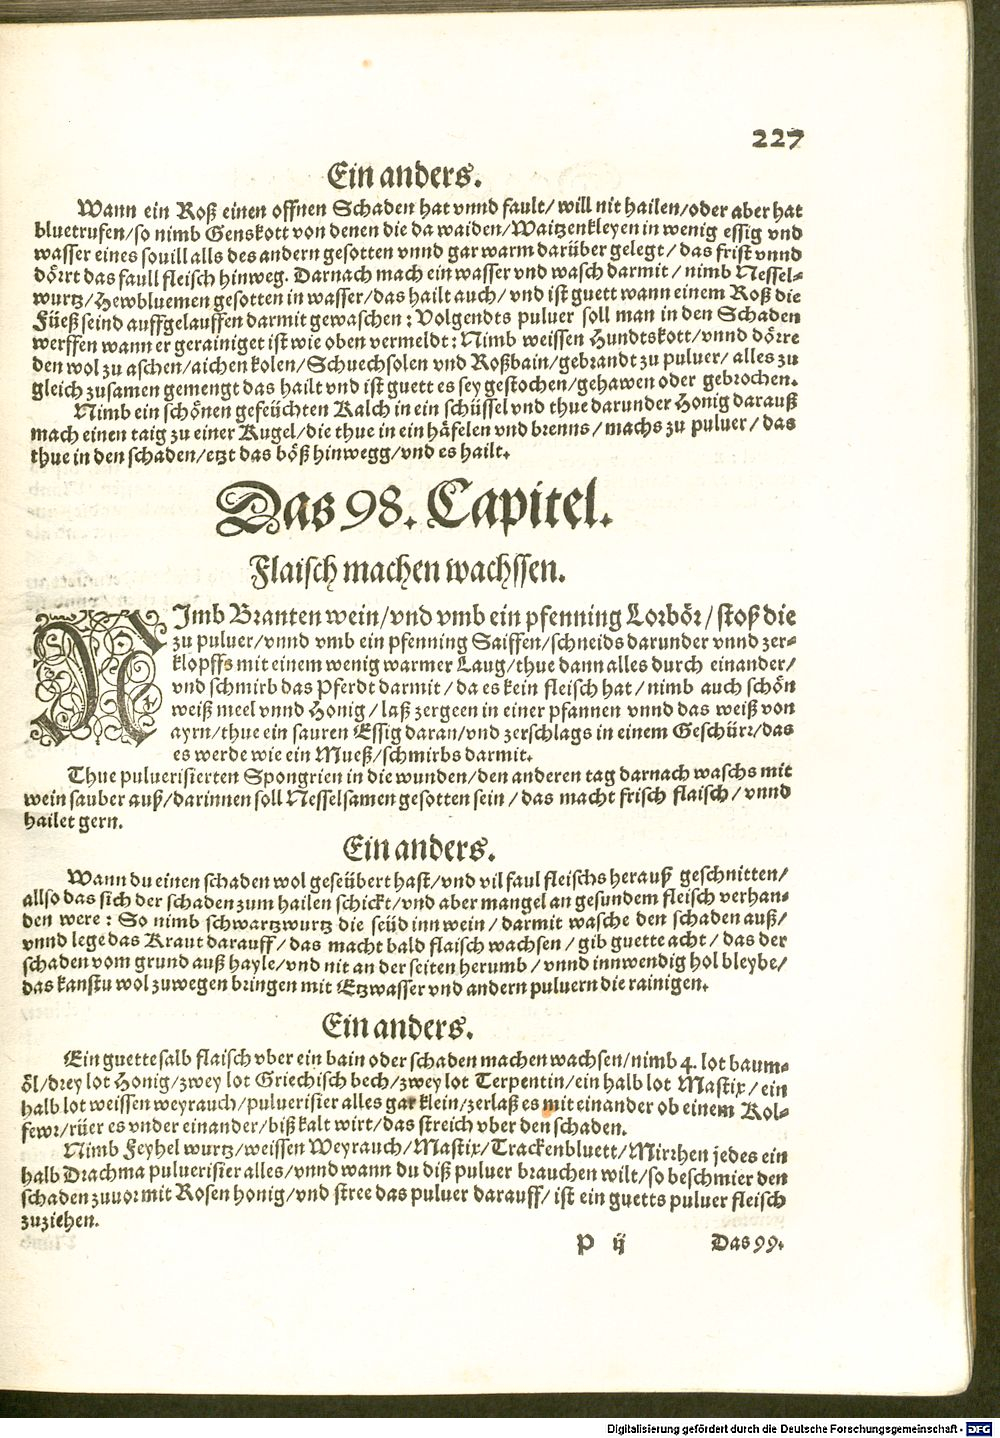 227
Ein anders.
Wann ein Roß einen offnen Schaden hat vnnd fault/ will nit hailen/oder aber hat
bluetrusen/so nimb Genskott von denen die da waiden/Waitzenkleyen in wenig essig vnd
wasser eines souill alls des andern gesotten vnnd gar warm darüber gelegt/ das frist vnnd
dörrt das faull fleisch hinweg. Darnach mach ein wasser vnd wasch darmit/ nimb Nessel-
wurtz/Hewbluemen gesotten in wasser/das hailt auch/ vnd ist guett wann einem Roß die
Füeß seind auffgelauffen darmit gewaschen: Volgendts puluer soll man in den Schaden
werffen wann er gerainiget ist wie oben vermeldt: Nimb weissen Hundtskott/vnnd dörre
den wol zu aschen/aichen kolen/Schuechsolen vnd Roßbain/gebrandt zu puluer/ alles zu
gleich zusamen gemengt das hailt vnd ist guett es sey gestochen/gehawen oder gebrochen.
Nimb ein schönen gefeüchten Kalch in ein schüssel vnd thue darunder Honig darauß
mach einen taig zu einer Kugel/die thue in ein häfelen vnd brenns/ machs zu puluer/ das
thue in den schaden/etzt das böß hinwegg/vnd es hailt.
Das 98. Capitel.
Flaisch machen wachssen.
NImb Branten wein/vnd vmb ein pfenning Lorbör/stoß die
zu puluer/vnnd vmb ein pfenning Saiffen/schneids darunder vnnd zer-
klopffs mit einem wenig warmer Laug/thue dann alles durch einander/
vnd schmirb das Pferdt darmit/ da es kein fleisch hat/ nimb auch schön
weiß meel vnnd Honig/ laß zergeen in einer pfannen vnnd das weiß von
ayrn/thue ein sauren Essig daran/vnd zerschlags in einem Geschürr/das
es werde wie ein Mueß/schmirbs darmit.
Thue puluerisierten Spongrien in die wunden/den anderen tag darnach waschs mit
wein sauber auß/darinnen soll Nesselsamen gesotten sein/ das macht frisch flaisch/ vnnd
hailet gern.
Ein anders.
Wann du einen schaden wol geseübert hast/vnd vil faul fleischs herauß geschnitten/
allso das sich der schaden zum hailen schickt/vnd aber mangel an gesundem fleisch verhan-
den were: So nimb schwartzwurtz die seüd inn wein/ darmit wasche den schaden auß/
vnnd lege das Kraut darauff/ das macht bald flaisch wachsen/ gib guette acht/ das der
schaden vom grund auß hayle/vnd nit an der seiten herumb/ vnnd innwendig hol bleybe/
das kanstu wol zuwegen bringen mit Etzwasser vnd andern puluern die rainigen.
Ein anders.
Ein guette salb flaisch vber ein bain oder schaden machen wachsen/nimb 4. lot baum-
öl/drey lot Honig/zwey lot Griechisch bech/zwey lot Terpentin/ein halb lot Mastix/ ein
halb lot weissen weyrauch/puluerisier alles gar klein/zerlaß es mit einander ob einem Kol-
fewr/rüer es vnder einander/biß kalt wirt/das streich vber den schaden.
Nimb Feyhel wurtz/weissen Weyrauch/Mastix/Trackenbluett/Mirrhen jedes ein
halb Drachma puluerisier alles/vnnd wann du diß puluer brauchen wilt/so beschmier den
schaden zuuor mit Rosen honig/vnd stree das puluer darauff/ ist ein guetts puluer fleisch
zuziehen.
P ij Das 99.
Digitalisierung gefördert durch die Deutsche Forschungsgemeinschaft - DFG